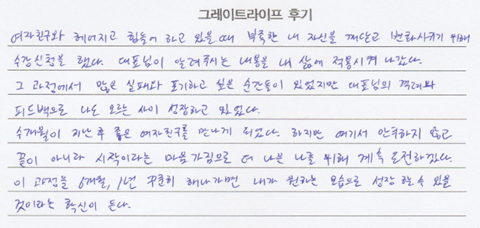 그레이트라이프 후기
여자친구와 헤어지고 힘들어 하고 있을 때 부족한 내 자신을 깨닫고 변화시키기 위해
수강신청을 했다. 대표님이 알려주시는 내용을 내 삶에 적용시켜 나갔다.
그 과정에서 많은 실패와 포기하고 싶은 순간들이 있었지만 대표님의 격려와
피드백으로 나도 모르는 사이 성장하고 있었다.
수개월이 지난 후 좋은 여자친구를 만나게 되었다. 하지만 여기서 안주하지 않고
끝이 아니라 시작이라는 마음가짐으로 더 나은 나를 위해 계속 도전하겠다.
이 과정을 6개월, 1년 꾸준히 해나가면 내가 원하는 모습으로 성장 할 수 있을
것이라는 확신이 든다.